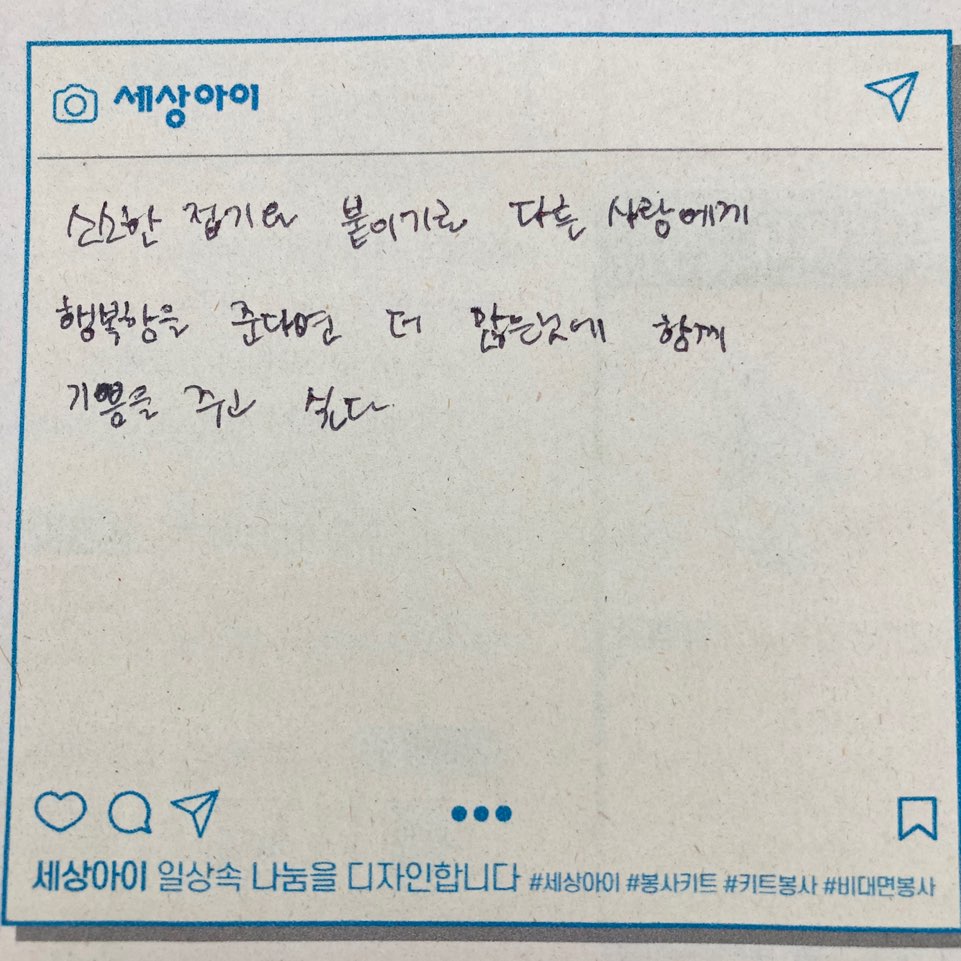 세상아이
소소한 접기와 붙이기로 다른 사람에게
행복함을 준다면 더 많은것에 함께
기쁨을 주고 싶다
세상아이 일상속 나눔을 디자인합니다 #세상아이 #봉사키트 #키트봉사 #비대면봉사